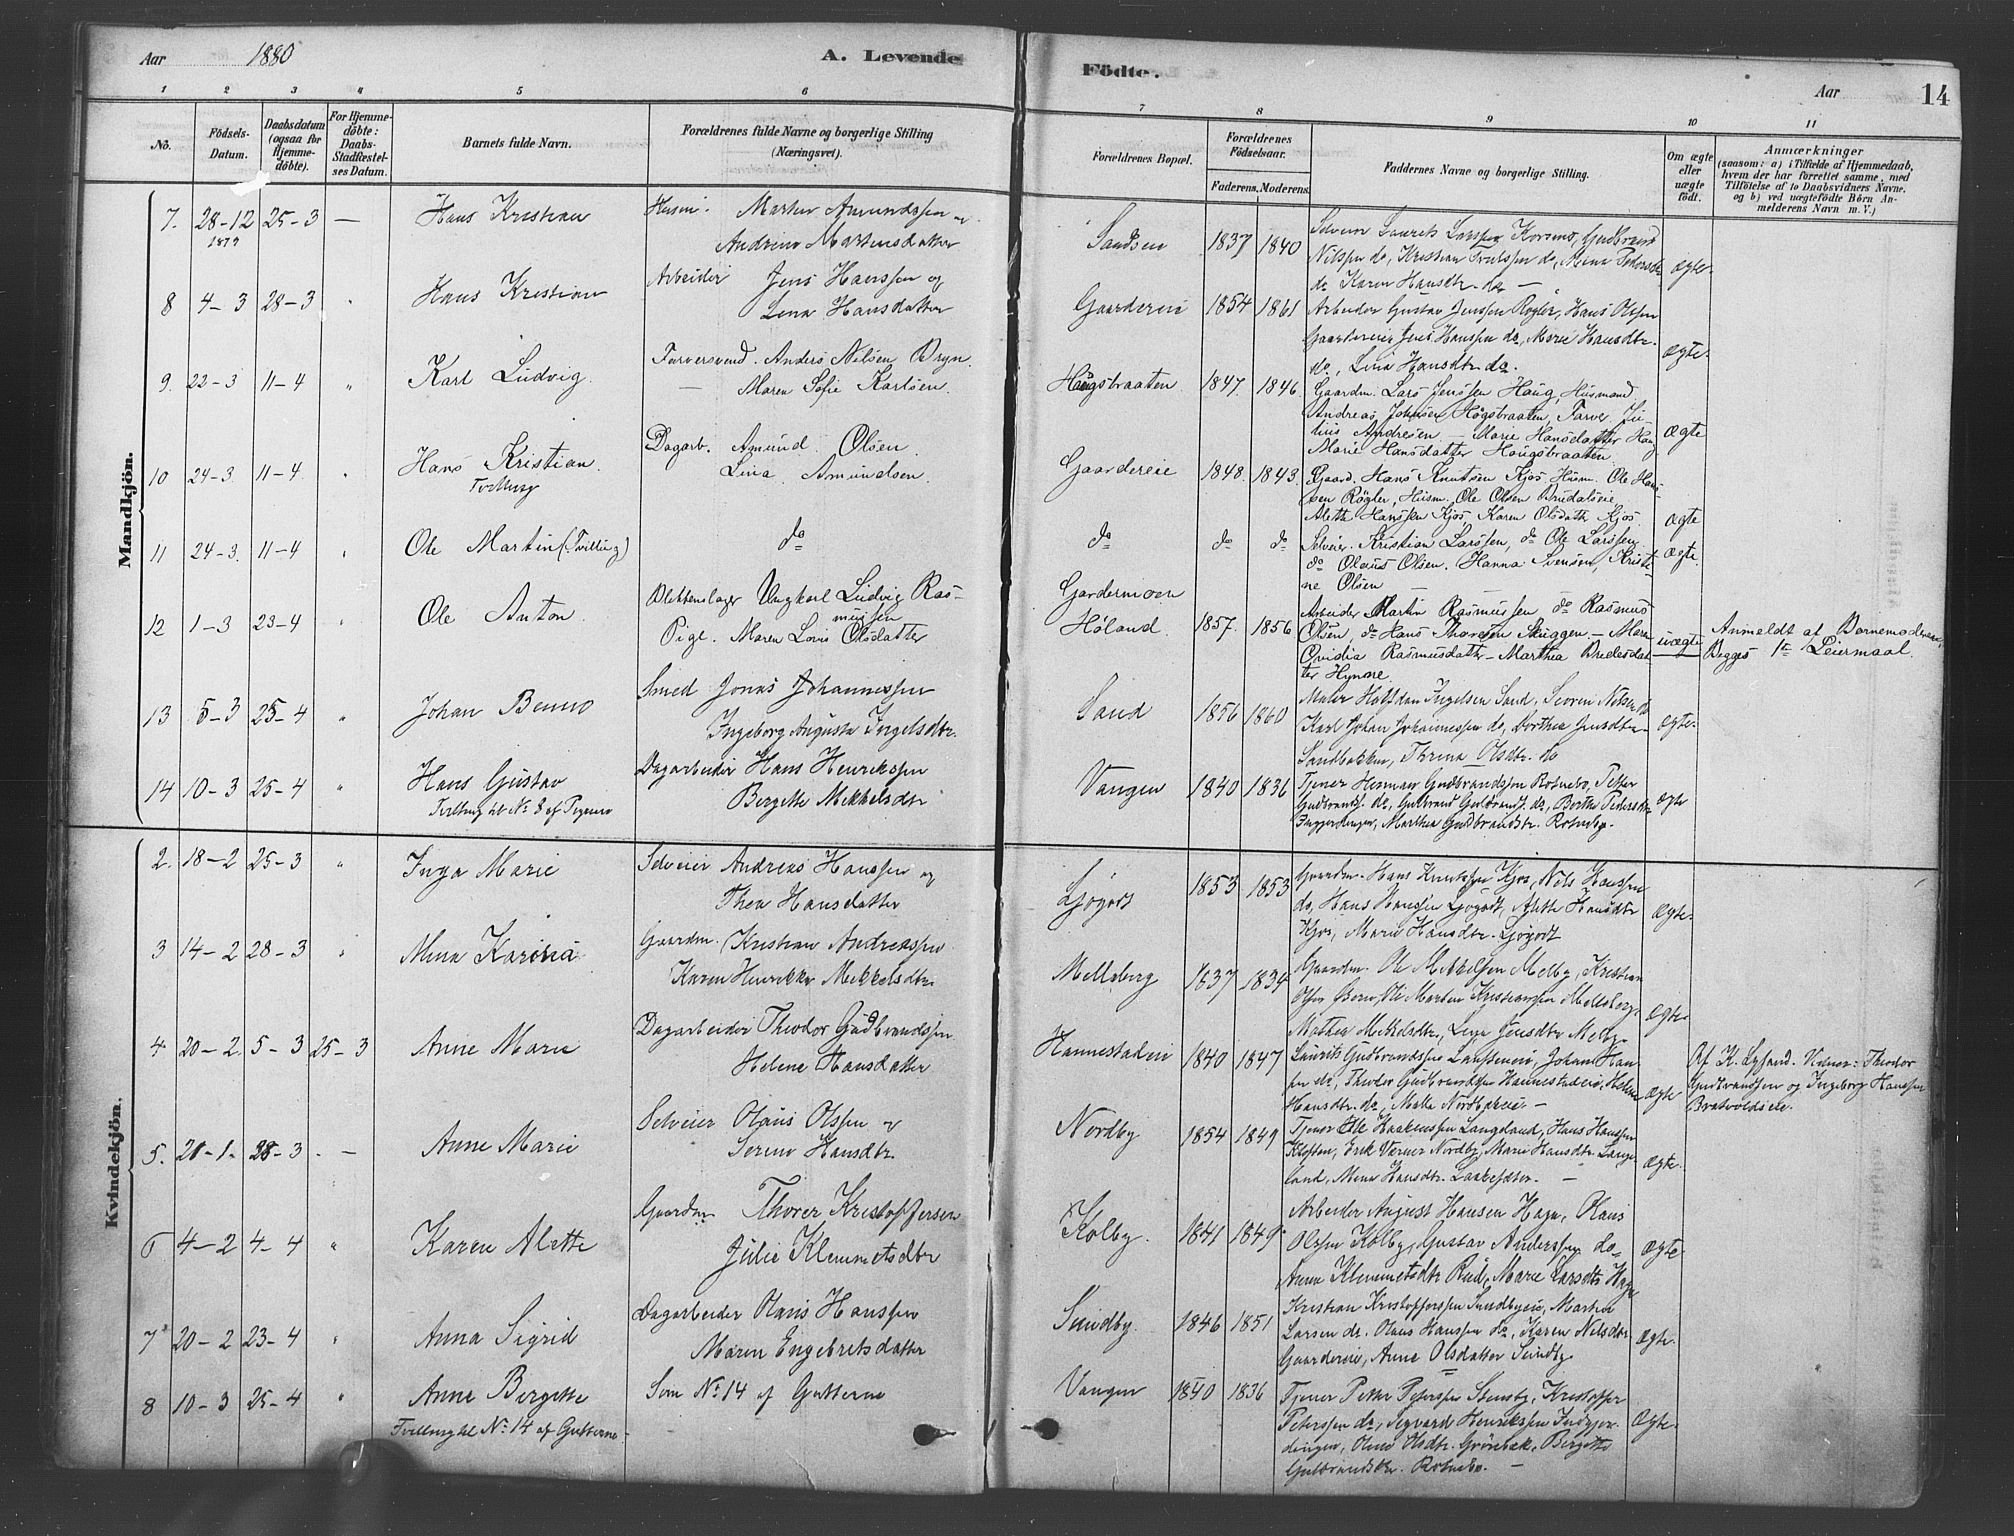 Aar 1880 A. Levende Födte. Aar 14
1 2 3 4 5 6 7 8 9 10 11
No.
Födsels-Datum.
Daabsdatum (ogsaa for Hjemmedöbte).
For Hjemmedöbte: Daabs-Stadfæstelses Datum.
Barnets fulde Navn.
Forældrenes fulde Navne og borgerlige Stilling (Næringsvei).
Forældrenes Bopæl.
Forældrenes Födselsaar. Faderens. Moderens.
Faddernes Navne og borgerlige Stilling.
Om ægte eller uægte födt.
Anmærkninger (saasom: a) i Tilfælde af Hjemmedaab, hvem der har forrettet samme, med Tilföielse af to Daabsvidners Navne, og b) ved uægtefödte Börn Anmelderens Navn m. V.)
Mandkjön.
7. 28-12 1879 25-3 — Hans Kristian
Martin Amundssen og
Martinsdatter
1837 1840
Laurits Larssen Korsmo, Gudbrand
Nilssen do, Kristian Trulssen do,
do Karen Hansdtr. do —
ægte.
8 4-3 28-3 " Hans Kristian
Arbeider Jens Hanssen og
Lina Hansdatter
Gaardereie 1854 1861
Arbeider Gustav Jenssen Røgler, Hans Olsen
Gaardereie, Jens Hanssen do, Marie Hansdtr.
do, Lina Hansdtr. do.
ægte.
9. 22-3 11-4 " Karl Ludvig.
Farversvend. Anders Nilsen Bryn.
— Maren Sofie Karlsen.
Haugsbraaten 1847. 1846.
Gaardm. Lars Jenssen Haug, Husmand
Andreas Johnsen Høgsbraaten, Farver Ju-
lius Andresen — Marie Hansdatter Haug
Marie Hansdatter Haugsbraaten.
ægte
10 24-3 11-4 " Hans Kristian.
Tvilling
Dagarb. Amund Olsen.
Lina Amundsen.
Gaardereie 1848. 1843.
Gaard. Hans Knutsen Kjos Husm. Ole Han-
sen Røgler, Husm. Ole Olsen Bredalseie
Aleth. Hanssen Kjos, Karen Olsdatter Kjos.
ægte
11 24-3. 11-4 " Ole Martin (Tvilling)
do do do do
Selveier. Kristian Larssen, do Ole Larssen.
do Olaus Olsen. Hanna Svensen, Kristi-
ne Olsen —
ægte.
12 1-3 23-4 " Ole Anton.
Ungkarl Ludvig Ras-
mussen
Pige. Maren Lovis Olsdatter
Gardermoen
Høland. 1857. 1856
Arbeider Martin Rasmussen do Rasmus
Olsen, do Hans Thoresen Skuggen — Maren
Ovidia Rasmusdatter — Marthea Bredesdat-
ter Hynne.
uægte
Anmeldt af Barnemoderen,
Begges 1ste Leiermaal.
13 5-3 25-4 " Johan Benno
Smed Jonas Johannessen
Ingeborg Augusta Ingelsdtr.
Sand 1856 1860
Maler Halfdan Ingelsen Sand, Nilsen do
Karl Johan Johannessen do, Dorthea Jensdtr.
Sandbakken, Thrina Olsdtr. do
ægte.
14 10-3 25-4 " Hans Gustav
Tvilling til No 8 af Pigerne
Dagarbeider Hans Henrikssen
Bergitte Mikkelsdtr.
Vangen 1840 1836
Tjener Herman Gudbrandssen Rotnebo, Petter
Gudbrands. do, Gulbrand Gulbrands. do, Berthe Petersdtr.
Marthea Gulbrandsdtr.
ægte
Kvindekjön.
2. 18-2 25-3 " Inga Marie
Selveier Andreas Hanssen og
Thea Hansdatter
Ljøgodt 1853 1853
Gaardm. Hans Knutssen Kjos, Nils Hanssen
do, Hans Hanssen Ljøgodt, Alette Hansdtr.
Kjos, Marie Hansdtr. Ljøgodt
ægte.
3 14-2 28-3 " Mina Karina
Gaardm. Kristian Andreassen
Karen Henrikke Mikkelsdtr.
Melleberg 1837 1834
Gaardm. Ole Mikkelsen Melby, Kristian
Martin Kristianssen Melleberg.
Mathea Mikkelsdtr., Jensdtr. Melby.
ægte.
4. 20-2. 5-3 25-3 Anne Marie
Dagarbeider Theodor Gudbrandssen
Helene Hansdatter
Hannestadeie 1840 1847
Laurits Gudbrandssen Johan Han-
sen do, Theodor Gudbrandssen Hannestadeie, Helene
Hansdtr. do, —
ægte
Vidner: Theodor
Gudbrandssen og Ingeborg Hanssen
5. 21-1. 28-3 — Anne Marie
Selveier Olaus Olssen og
Hansdtr.
Nordby 1854 1849
Tjener Ole Haakenssen Langeland, Hans Hanssen
Kloften, Erik Verner Nordby, Marie Hansdtr. Lange-
land, Mina Hansdtr. —
ægte.
6 4-2 4-4 " Karen Alette
Gaardm. Thorer Kristoffersen
Julie Klemmetsdtr
Kolby. 1841 1849
Arbeider August Hansen Haga, Olaus
Olssen Kolby, Gustav Anderssen do,
Anne Klemmetsdtr. Rud, Marie Larsdtr. Haga
ægte
7 20-2 23-4 " Anna Sigrid
Dagarbeider Olaus Hanssen
Maren Engebretsdatter
Sundby. 1846 1851
Kristian Kristofferssen Sundbyeie, Martin
Larsen do. Olaus Hanssen do, Karen Nilsdtr.
Gaardereie, Anne Olsdatter Sundby
ægte.
8 10-3 25-4 " Anne Bergitte
Tvilling til No 14 af Gutterne.
Som No 14 af Gutterne
Vangen 1840 1836
Tjener Petter Peterssen Kristoffer
Peterssen do, Sigvard Henrikssen
Grønbæk, Bergitte
Gulbrandsdtr. —
ægte.